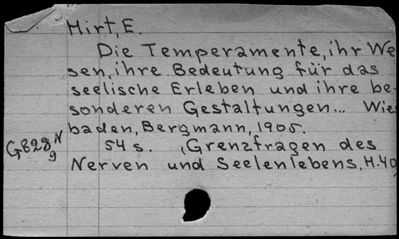 Hirt, E.
Die Temperamente, ihr We
sen, ihre Bedeutung für das
seelische Erleben und ihre be-
sonderen Gestaltungen... Wies
baden, Bergmann, 1905.
54 s. (Grenzfragen des
Nerven und Seelenlebens, H.40